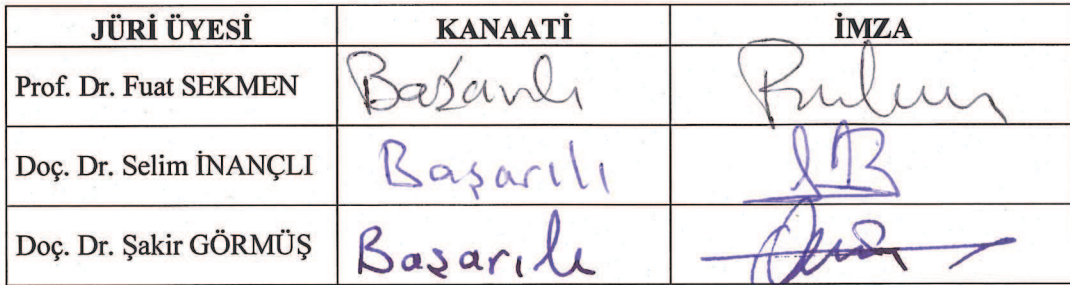 JÜRİ ÜYESİ KANAATİ İMZA
Prof. Dr. Fuat SEKMEN Başarılı
Doç. Dr. Selim İNANÇLI Başarılı
Doç. Dr. Şakir GÖRMÜŞ Başarılı